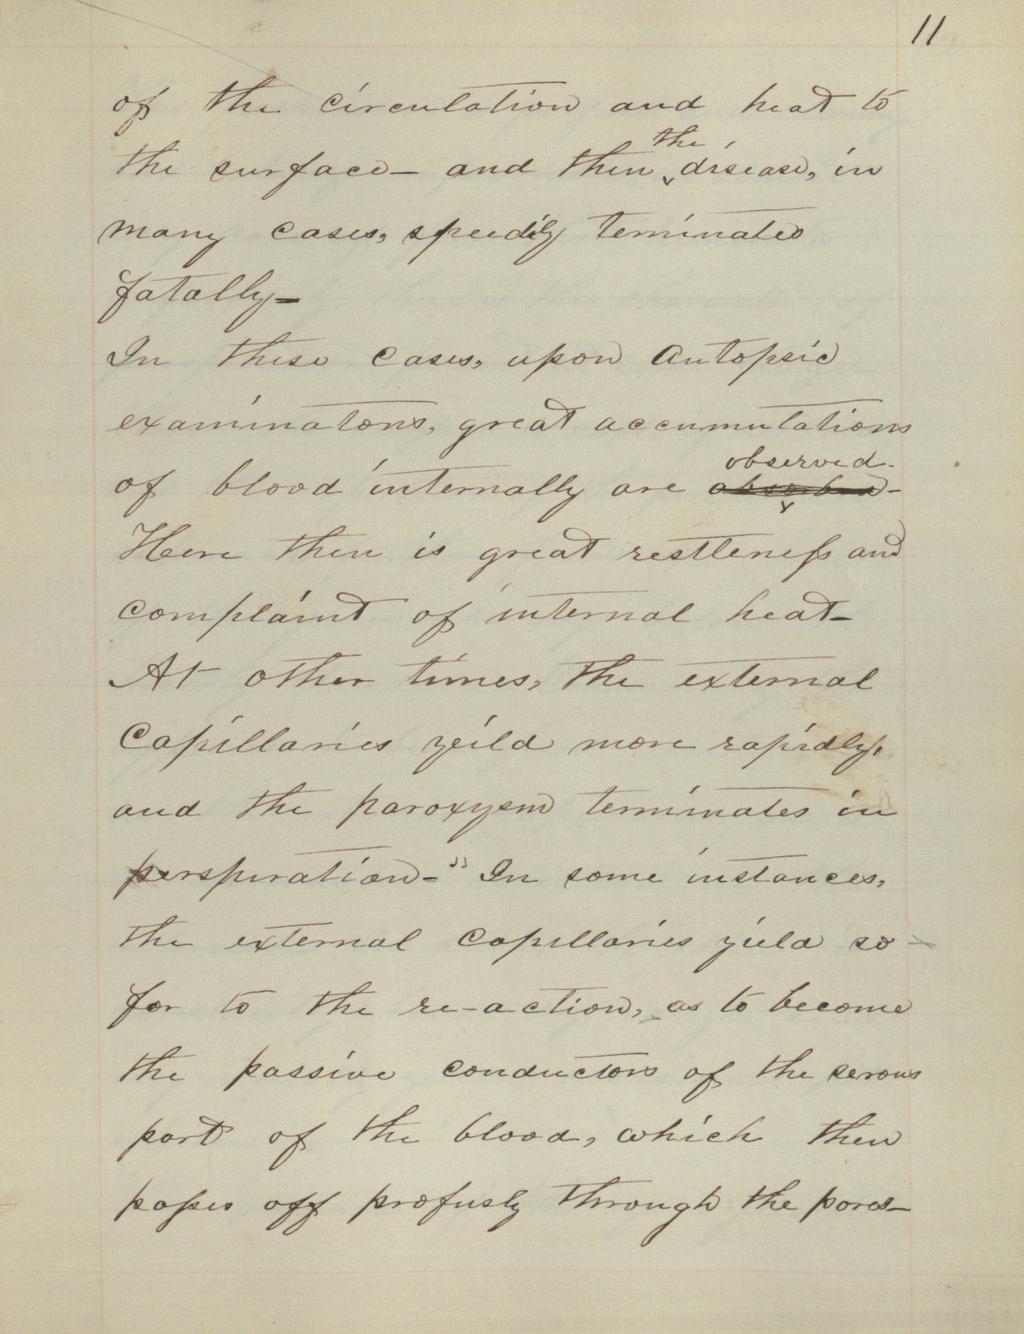 11
of the circulation and heat to
the surface - and then the disease, in
many cases, speedily terminates
fatally -
In these cases, upon autopsic
examinatons, great accumulations
of blood internally are absorbed observed -
Here then is great restleness and
complaint of internal heat -
At other times, the external
Capillaries yeild more rapidly,
and the paroxysm terminates in
perspiration - " In some instances,
the external capillaries yield so -
far to the re-action, as to become
the passive conductors of the serous
part of the blood, which then
passes off profusly through the pores -